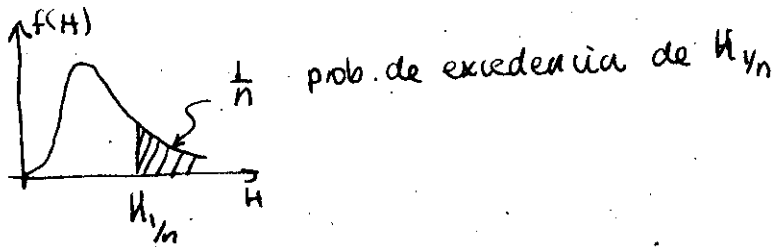 f(H)
1/n prob. de excedencia de H1/n
H
H1/n